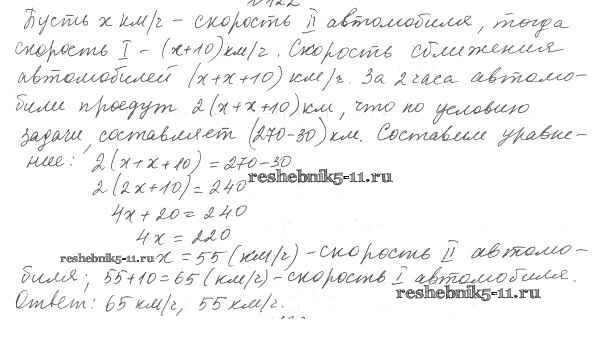 №122
Пусть x км/г - скорость II автомобиля, тогда
скорость I - (x+10) км/г. Скорость сближения
автомобилей (x+x+10) км/г. За 2 часа автомо-
били проедут 2(x+x+10) км, что по условию
задачи, составляет (270-30) км. Составим уравне-
ние: 2(x+x+10)=270-30
reshebnik5-11.ru
2(2x+10)=240
4x+20=240
4x=220
reshebnik5-11.ru x=55 (км/г) - скорость II автомо-
биля; 55+10=65 (км/г) - скорость I автомобиля.
Ответ: 65 км/г, 55 км/г.
reshebnik5-11.ru